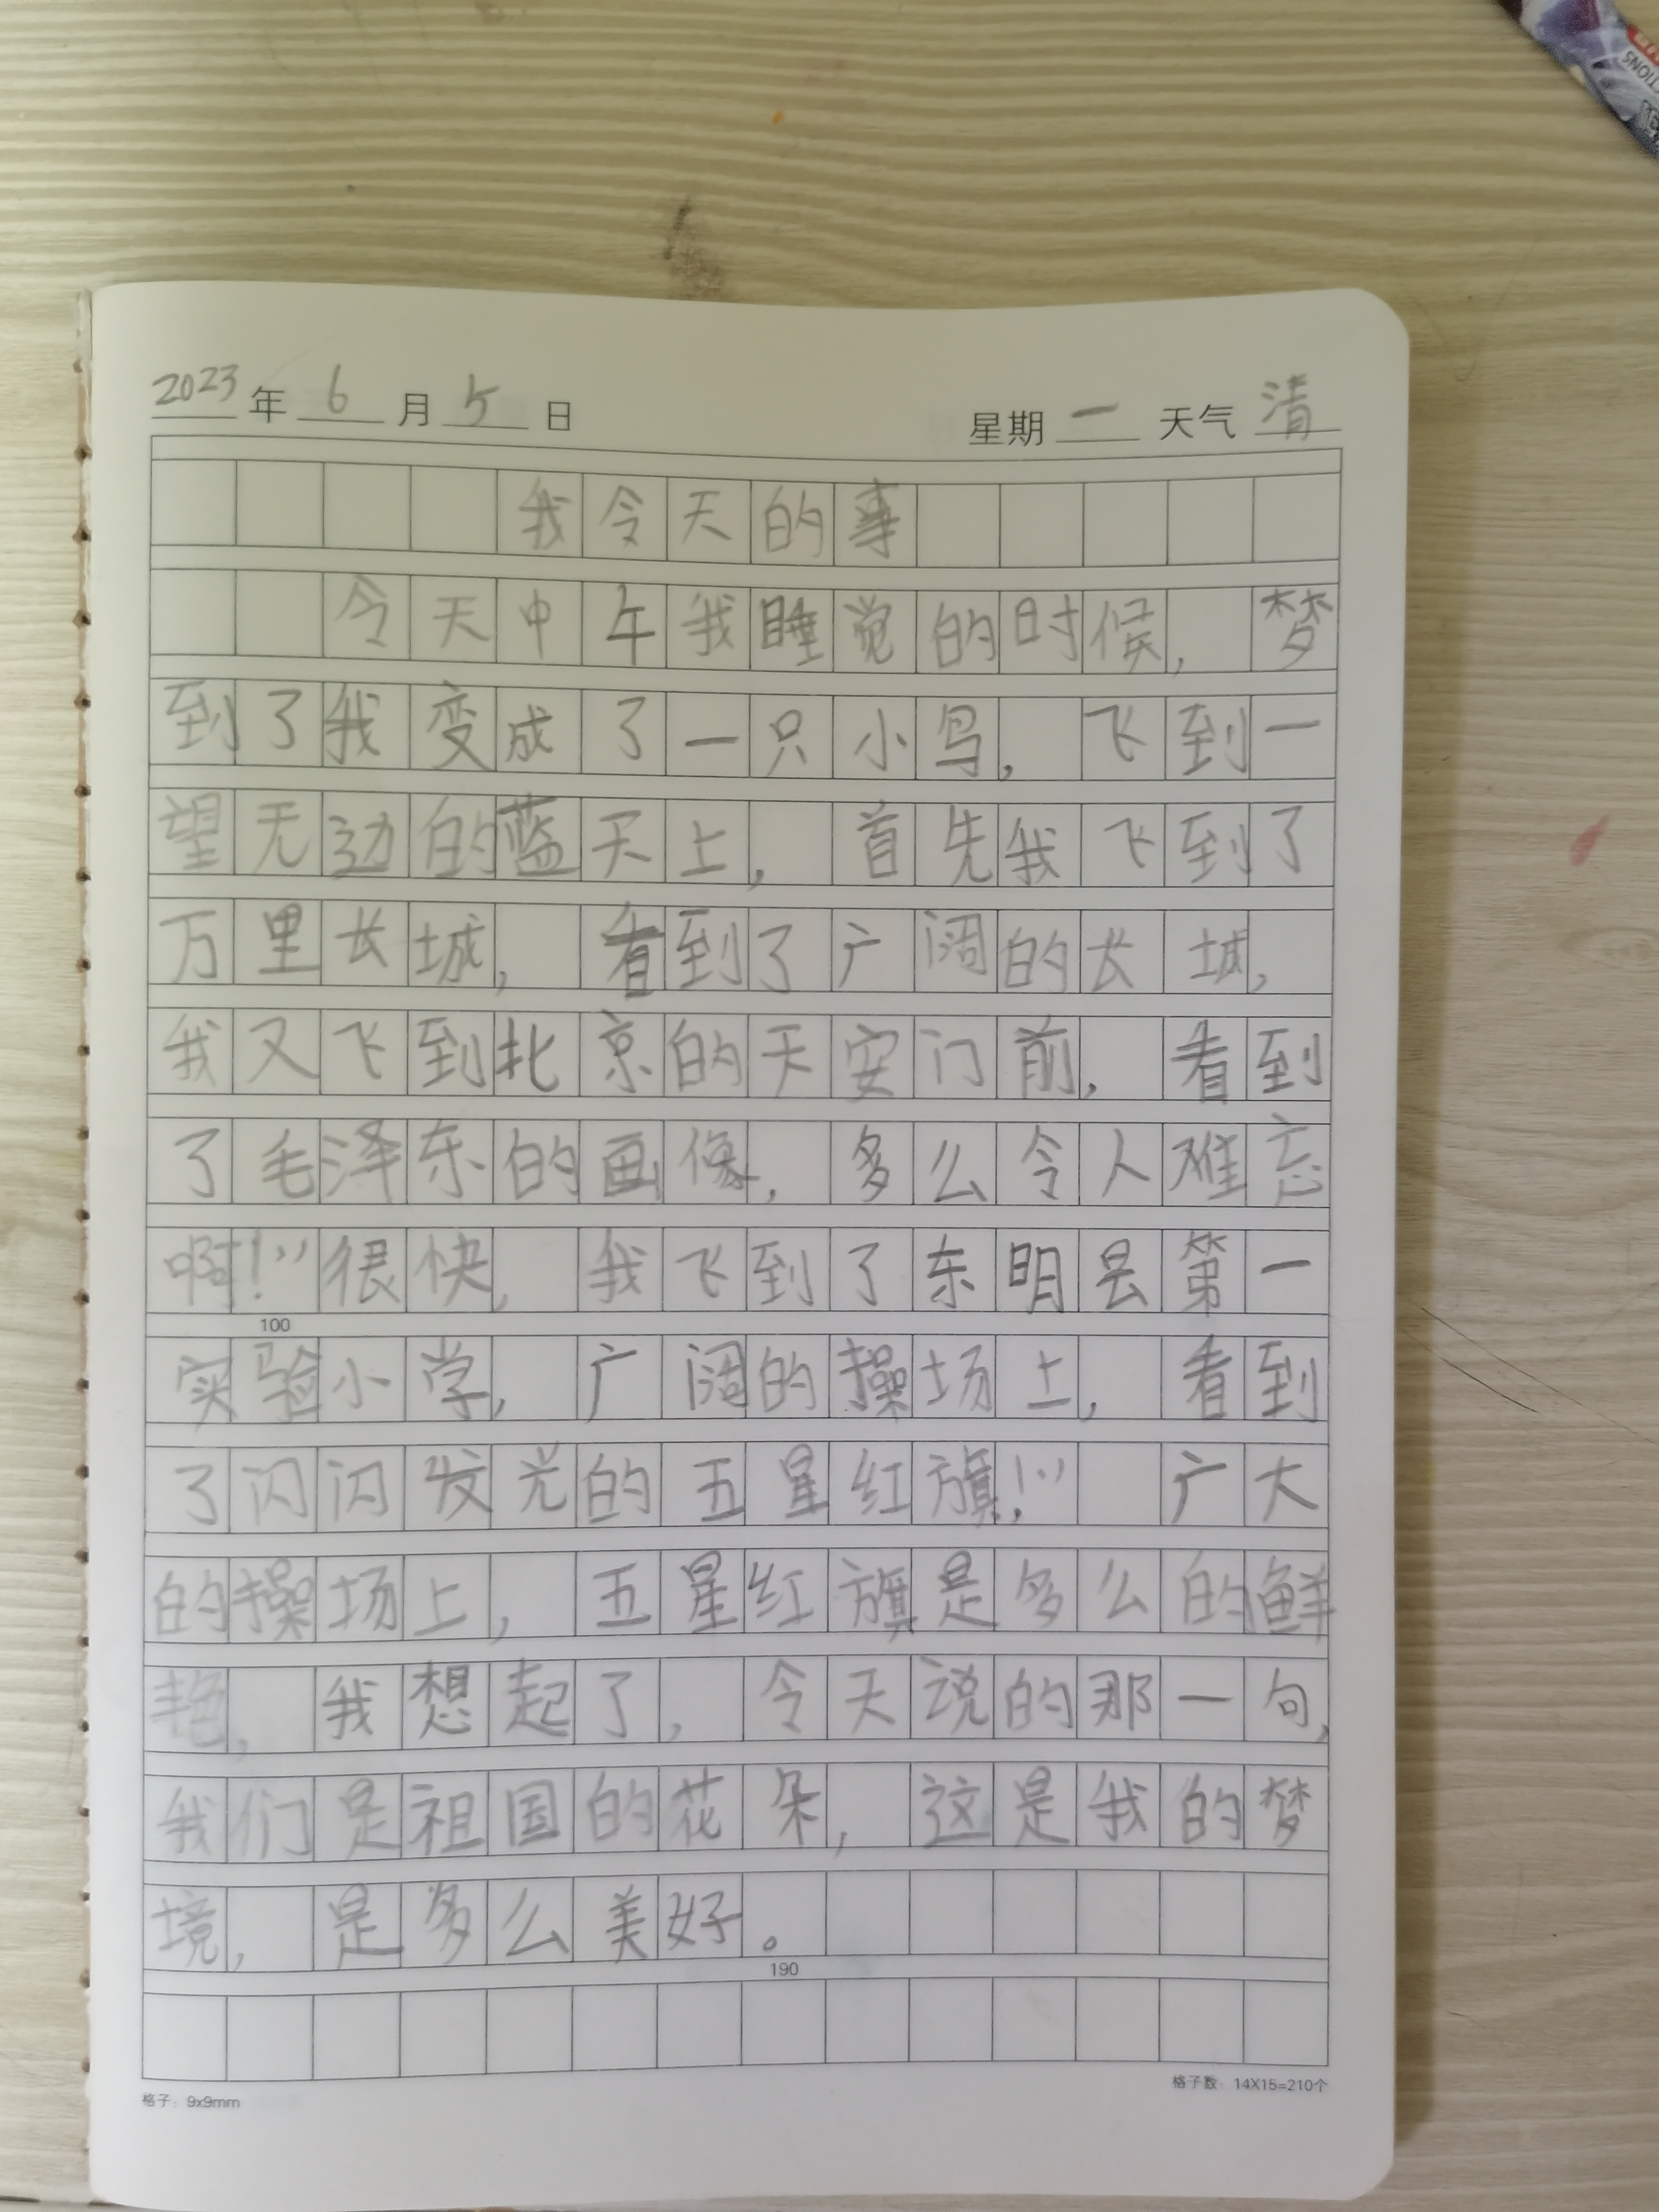 2023年6月5日 星期一 天气清
我令天的事
令天中午我睡觉的时候，梦
到了我变成了一只小鸟，飞到一
望无边的蓝天上，首先我飞到了
万里长城，看到了广阔的长城，
我又飞到北京的天安门前，看到
了毛泽东的画像，多么令人难忘
啊！”很快，我飞到了东明县第一
100
实验小学，广阔的操场上，看到
了闪闪发光的五星红旗！” 广大
的操场上，五星红旗是多么的鲜
艳，我想起了，令天说的那一句，
我们是祖国的花朵，这是我的梦
境，是多么美好。
190
格子：9x9mm 格子数：14X15=210个